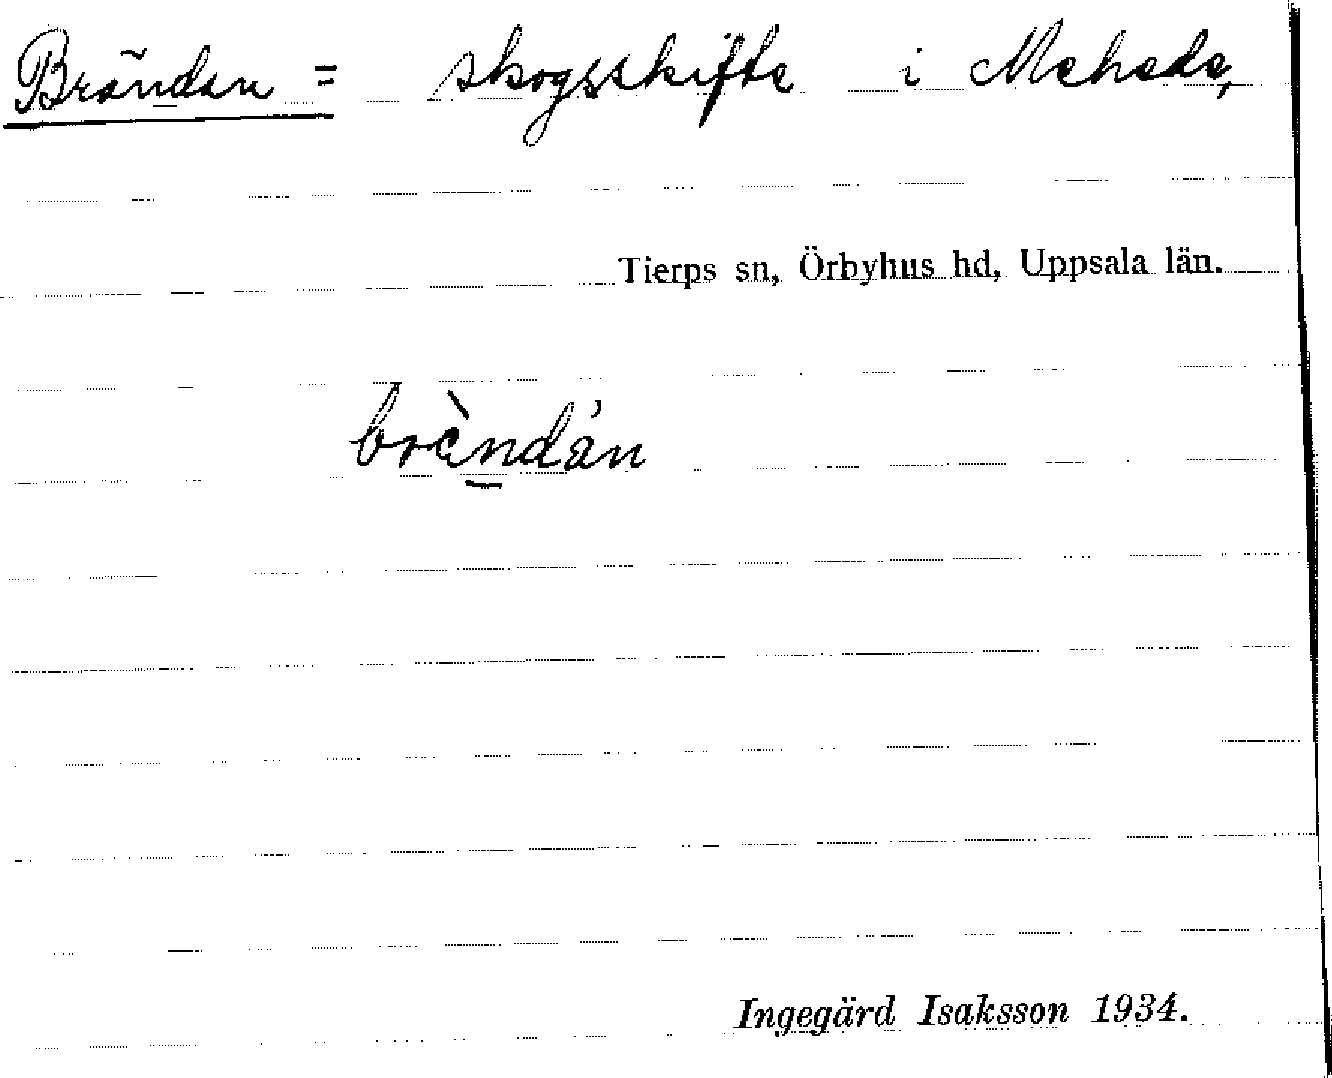 Brändan = skogsskifte i Mehede,
Tierps sn, Örbyhus hd, Uppsala län.
brὲndán
Ingegärd Isaksson 1934.